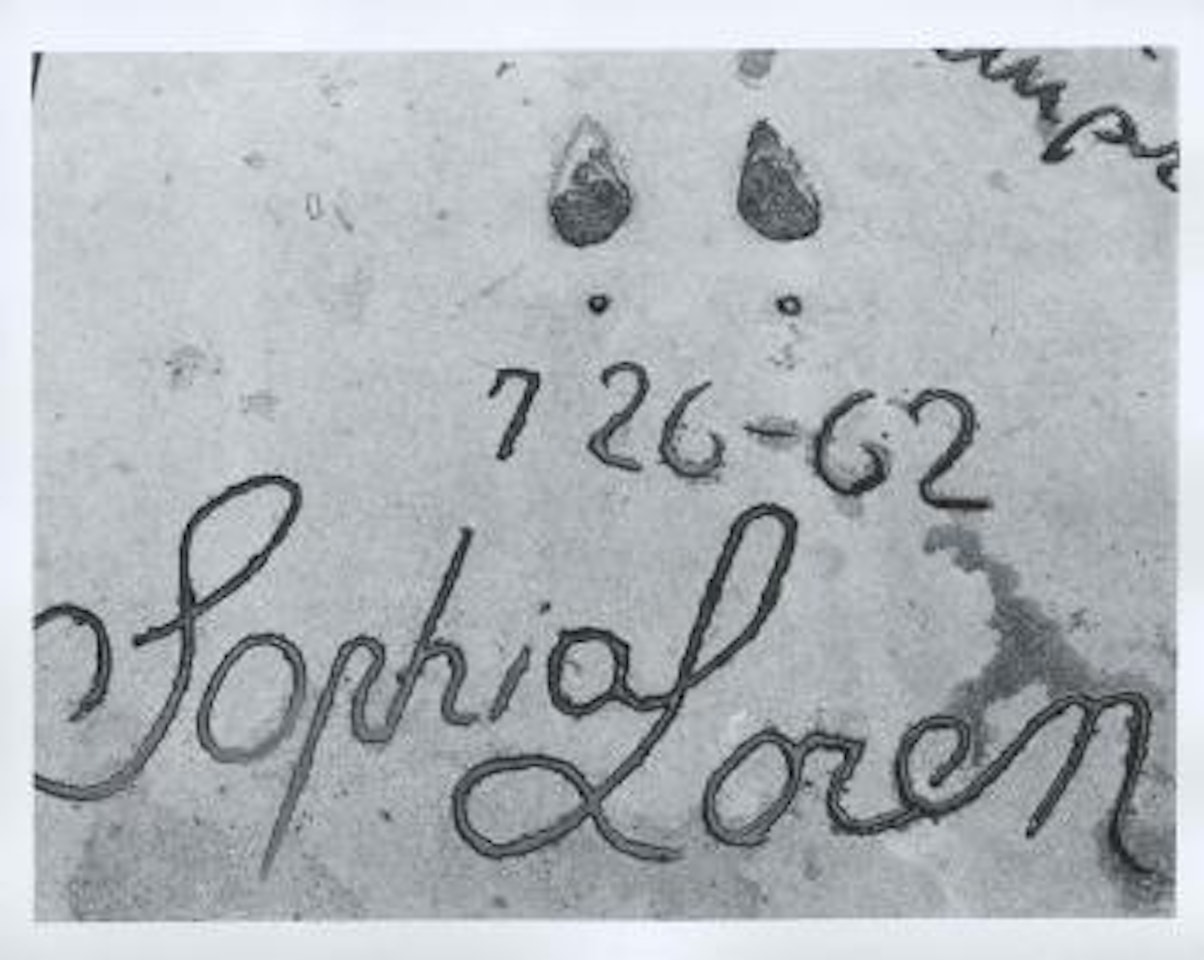 7 26-62
Sophia
Loren